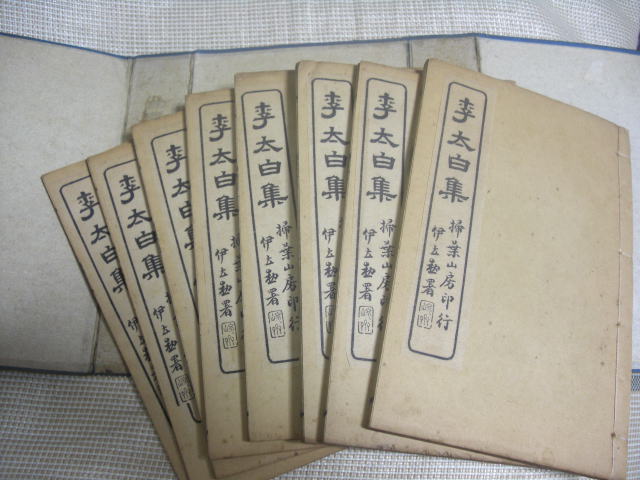 李太白集
掃葉山房印行
伊立勳署
李太白集
掃葉山房印行
伊立勳署
李太白集
伊立勳署
李太白集
掃葉山房印行
伊立勳署
李太白集
掃葉山房印
伊立勳署
李太白集
伊立勳署
李太白集
伊立勳署
李太白集
伊立勳